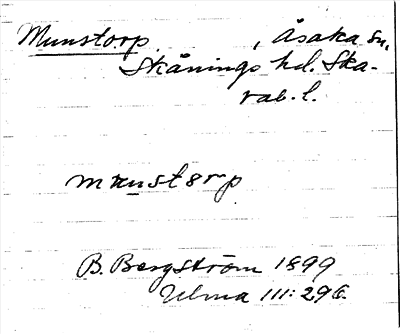 Munstorp, Åsaka sn,
Skånings hd. Ska-
rab. l.
B. Bergström 1899
Ulma 111: 296.